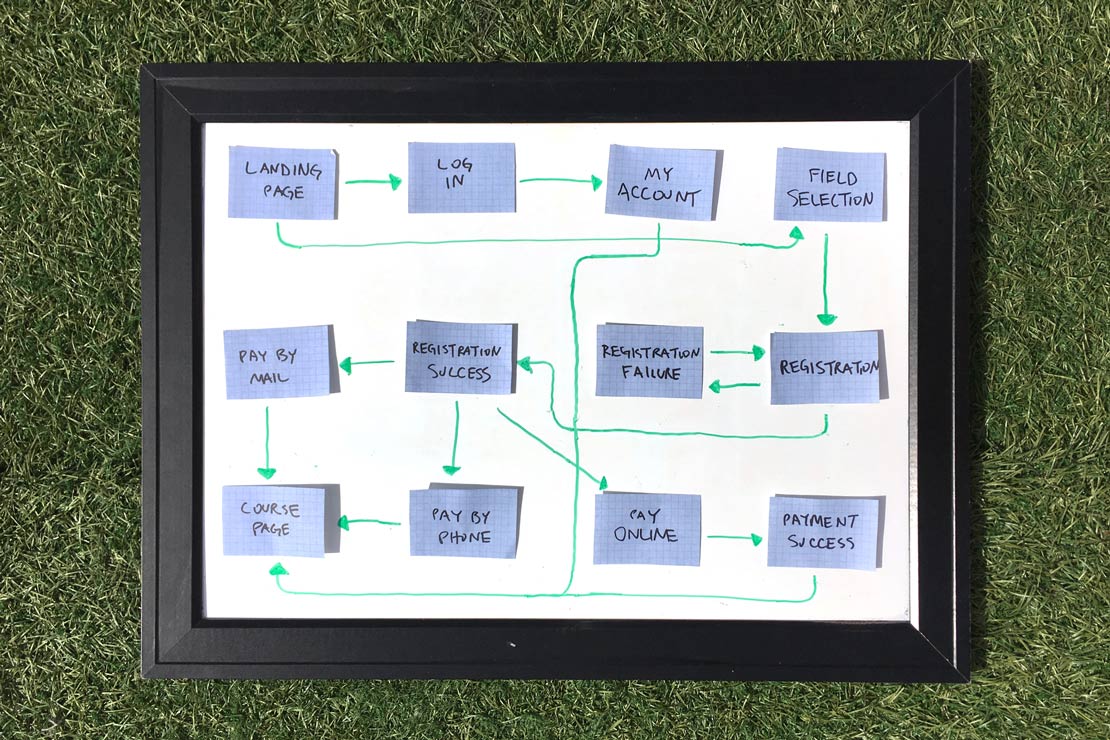 LANDING
PAGE
LOG
IN
MY
ACCOUNT
FIELD
SELECTION
PAY BY
MAIL
REGISTRATION
SUCCESS
REGISTRATION
FAILURE
REGISTRATION
COURSE
PAGE
PAY BY
PHONE
PAY
ONLINE
PAYMENT
SUCCESS